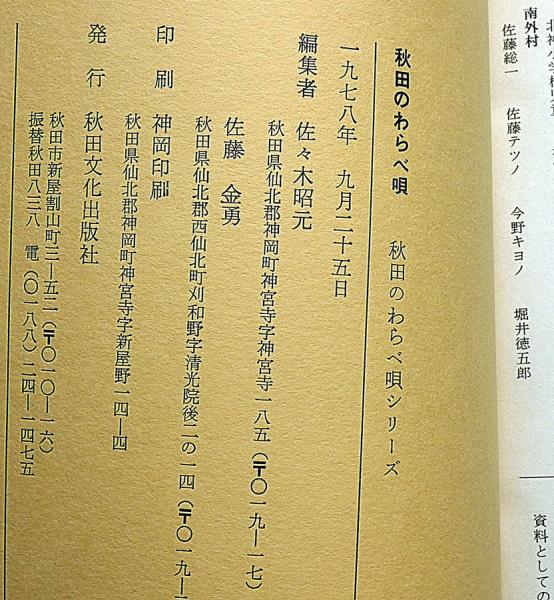 南外村
佐藤総一　佐藤テツノ　今野キヨノ　堀井徳五郎
資料としての
秋田のわらべ唄　秋田のわらべ唄シリーズ
一九七八年　九月二十五日
編集者　佐々木昭元
秋田県仙北郡神岡町神宮寺字神宮寺一八五（〒〇一九―一七）
佐藤　金勇
秋田県仙北郡西仙北町刈和野字清光院後二の一四（〒〇一九―
印刷　神岡印刷
秋田県仙北郡神岡町神宮寺字新屋野一四―四
発行　秋田文化出版社
秋田市新屋割山町三―五二（〒〇一〇―一六）
振替秋田八三八　電（〇一八八）二四―一四七五